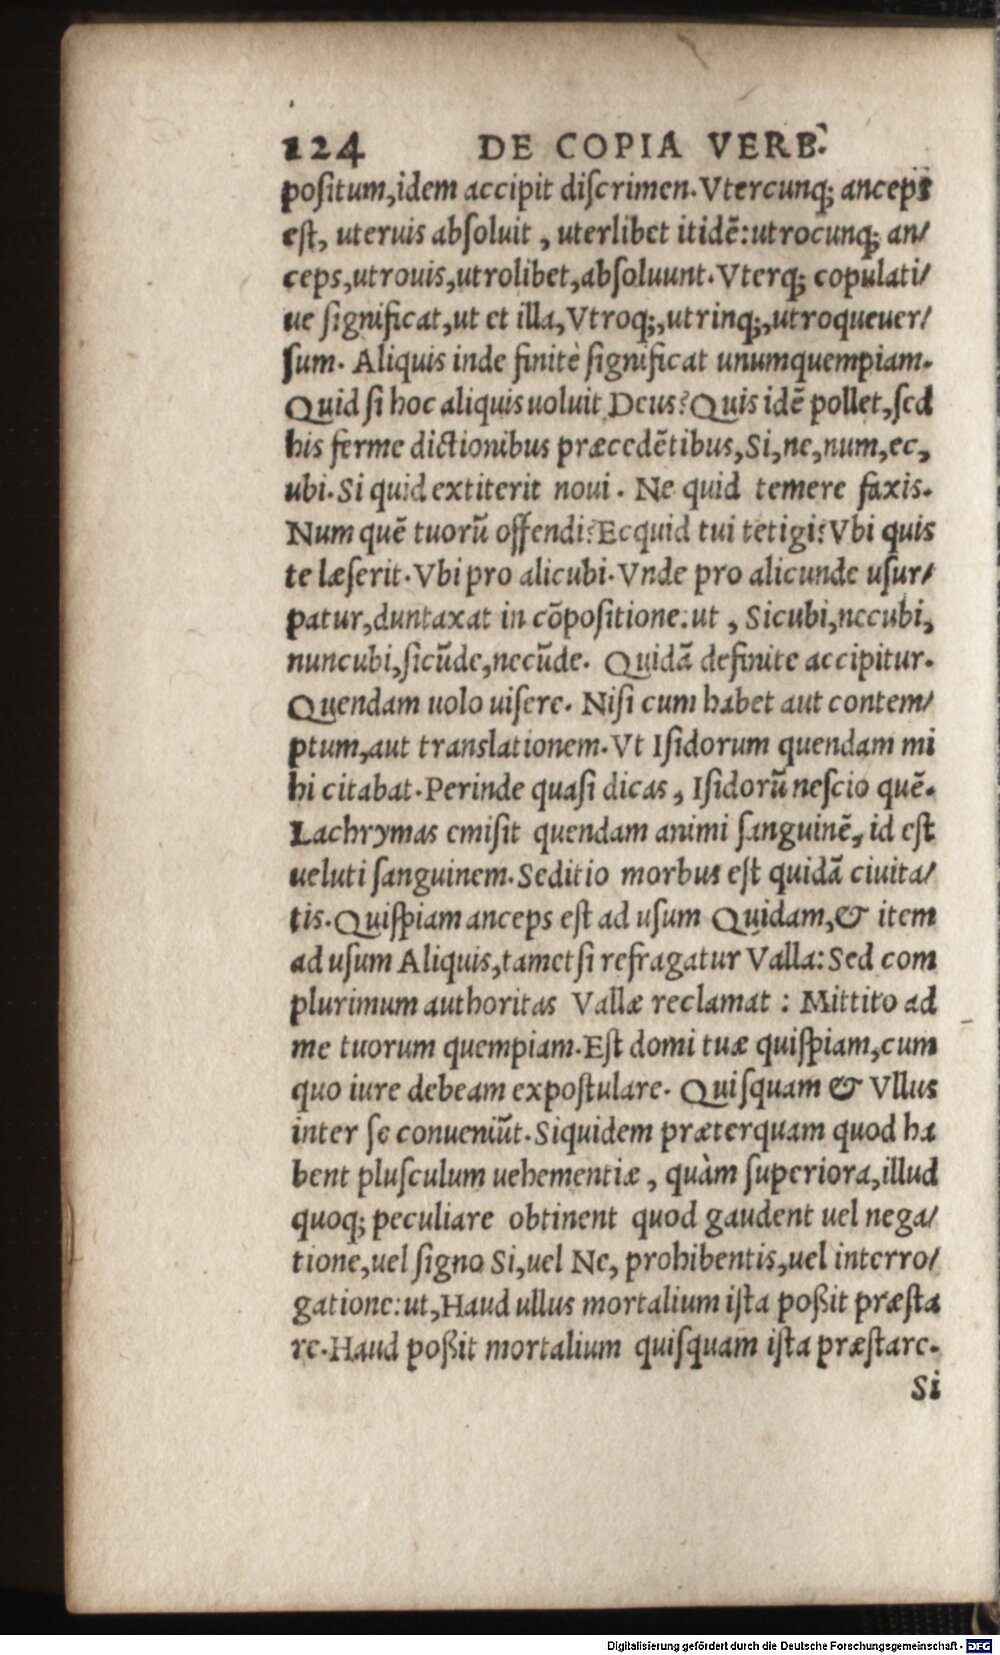 124 DE COPIA VERB.
poſitum,idem accipit diſcrimen. Vtercunq; anceps
eſt, uteruis abſoluit , uterlibet itidē:utrocunq; an/
ceps,utrouis,utrolibet,abſoluunt. Vterq; copulati/
ue ſignificat,ut et illa,Vtroq;,utrinq;,utroqueuer/
ſum. Aliquis inde finitè ſignificat unumquempiam.
Quid ſi hoc aliquis uoluit Deus?Quis idē pollet,ſed
his ferme dictionibus præcedētibus,Si,ne,num,ec,
ubi. Si quid extiterit noui . Ne quid temere faxis.
Num quē tuorū offendi?Ecquid tui tetigi?Vbi quis
te læſerit. Vbi pro alicubi. Vnde pro alicunde uſur/
patur,duntaxat in cōpoſitione:ut , Sicubi,necubi,
nuncubi,ſicūde,necūde. Quidā definite accipitur.
Quendam uolo uiſere. Niſi cum habet aut contem/
ptum,aut translationem. Vt Iſidorum quendam mi
hi citabat. Perinde quaſi dicas , Iſidorū neſcio quē.
Lachrymas emiſit quendam animi ſanguinē, id eſt
ueluti ſanguinem. Seditio morbus eſt quidā ciuita/
tis. Quiſpiam anceps eſt ad uſum Quidam,& item
ad uſum Aliquis,tametſi refragatur Valla: Sed com
plurimum authoritas Vallæ reclamat : Mittito ad
me tuorum quempiam. Eſt domi tuæ quiſpiam,cum
quo iure debeam expoſtulare. Quiſquam & Vllus
inter ſe conueniūt. Siquidem præterquam quod ha
bent pluſculum uehementiæ , quàm ſuperiora,illud
quoq; peculiare obtinent quod gaudent uel nega/
tione,uel ſigno Si,uel Ne, prohibentis,uel interro/
gatione:ut,Haud ullus mortalium iſta poßit præſta
re. Haud poßit mortalium quiſquam iſta præſtare.
Si
Digitalisierung gefördert durch die Deutsche Forschungsgemeinschaft - DFG